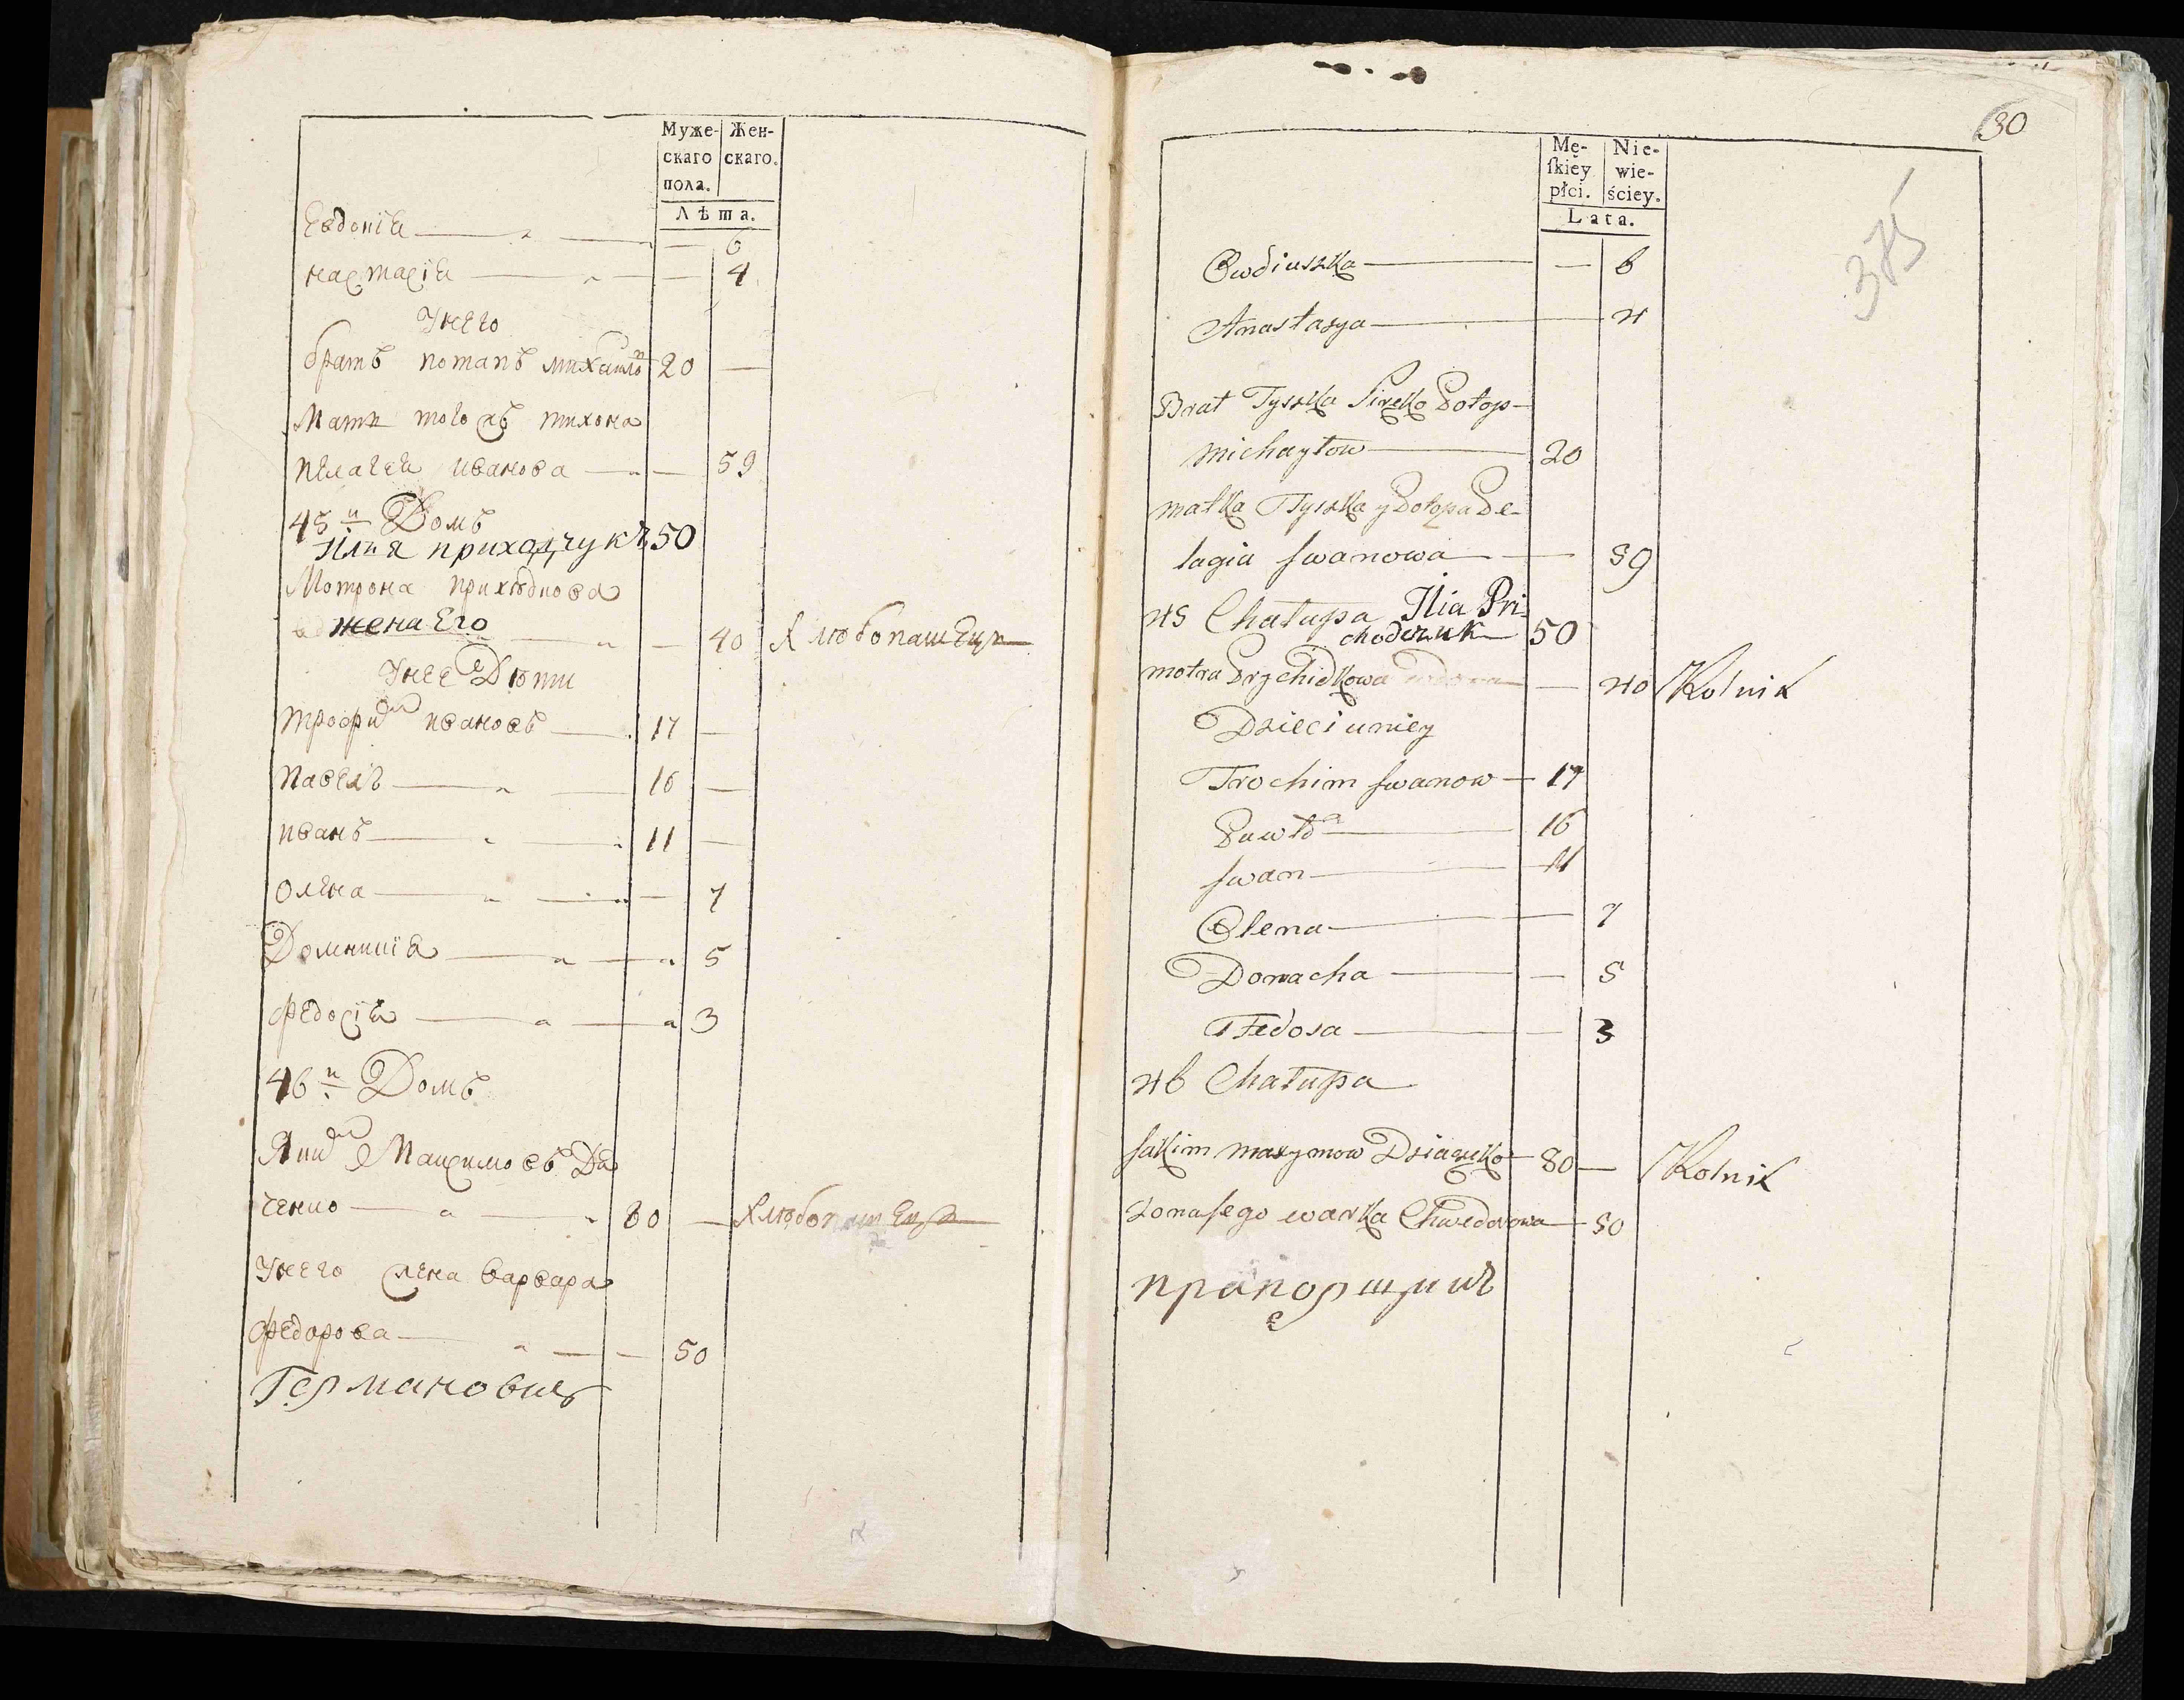 Муже-
скаго
пола.
Жен-
скаго.
Лѣта.
Евдокіѧ — — 6
настасіѧ — — 4
Унего
братъ потапъ михаилов 20 —
Мати тогожъ тихона
пелагеѧ иванова — — 59
45й Домъ
Илия приходчукъ 50
Мотрона приходкова
жена Его — — 40 Хлѣбопашецъ
Унее Дѣти
трофим ивановъ — 17 —
павелъ — — 16 —
иванъ — — 11 —
олена — — 7
Домникіа — — 5
Федосіѧ — — 3
46й Домъ
Яким Максимовъ Дя
ченко — — 80 — Хлѣбопашецъ
Унего жена варвара
федорова — — 50
Германовичъ
80
375
Mę-
ſkiéy
płci.
Nie-
wie-
ściey.
Lata.
Owdiuszka — — 6
Anastasya — 4
Brat Tyszka Potop
michayłow — 20
matka Tyszka y Potopa Pe-
lagia Iwanowa — — 59
45 Chałupa Ilia Pri
chodczuk — 50
motra Przychidkowa wdowa — 40 Rolnik
Dzieci uniey
Trochim Iwanow — 17
Pawło — 16
Iwan — 11
Olena — — 7
Domacha — — 5
Fedosa — — 3
46 Chałupa
Iakim maxymow Dziaczeko — 80 — Rolnik
Zona Jego warka Chwedorowa — 50
прапорщикъ